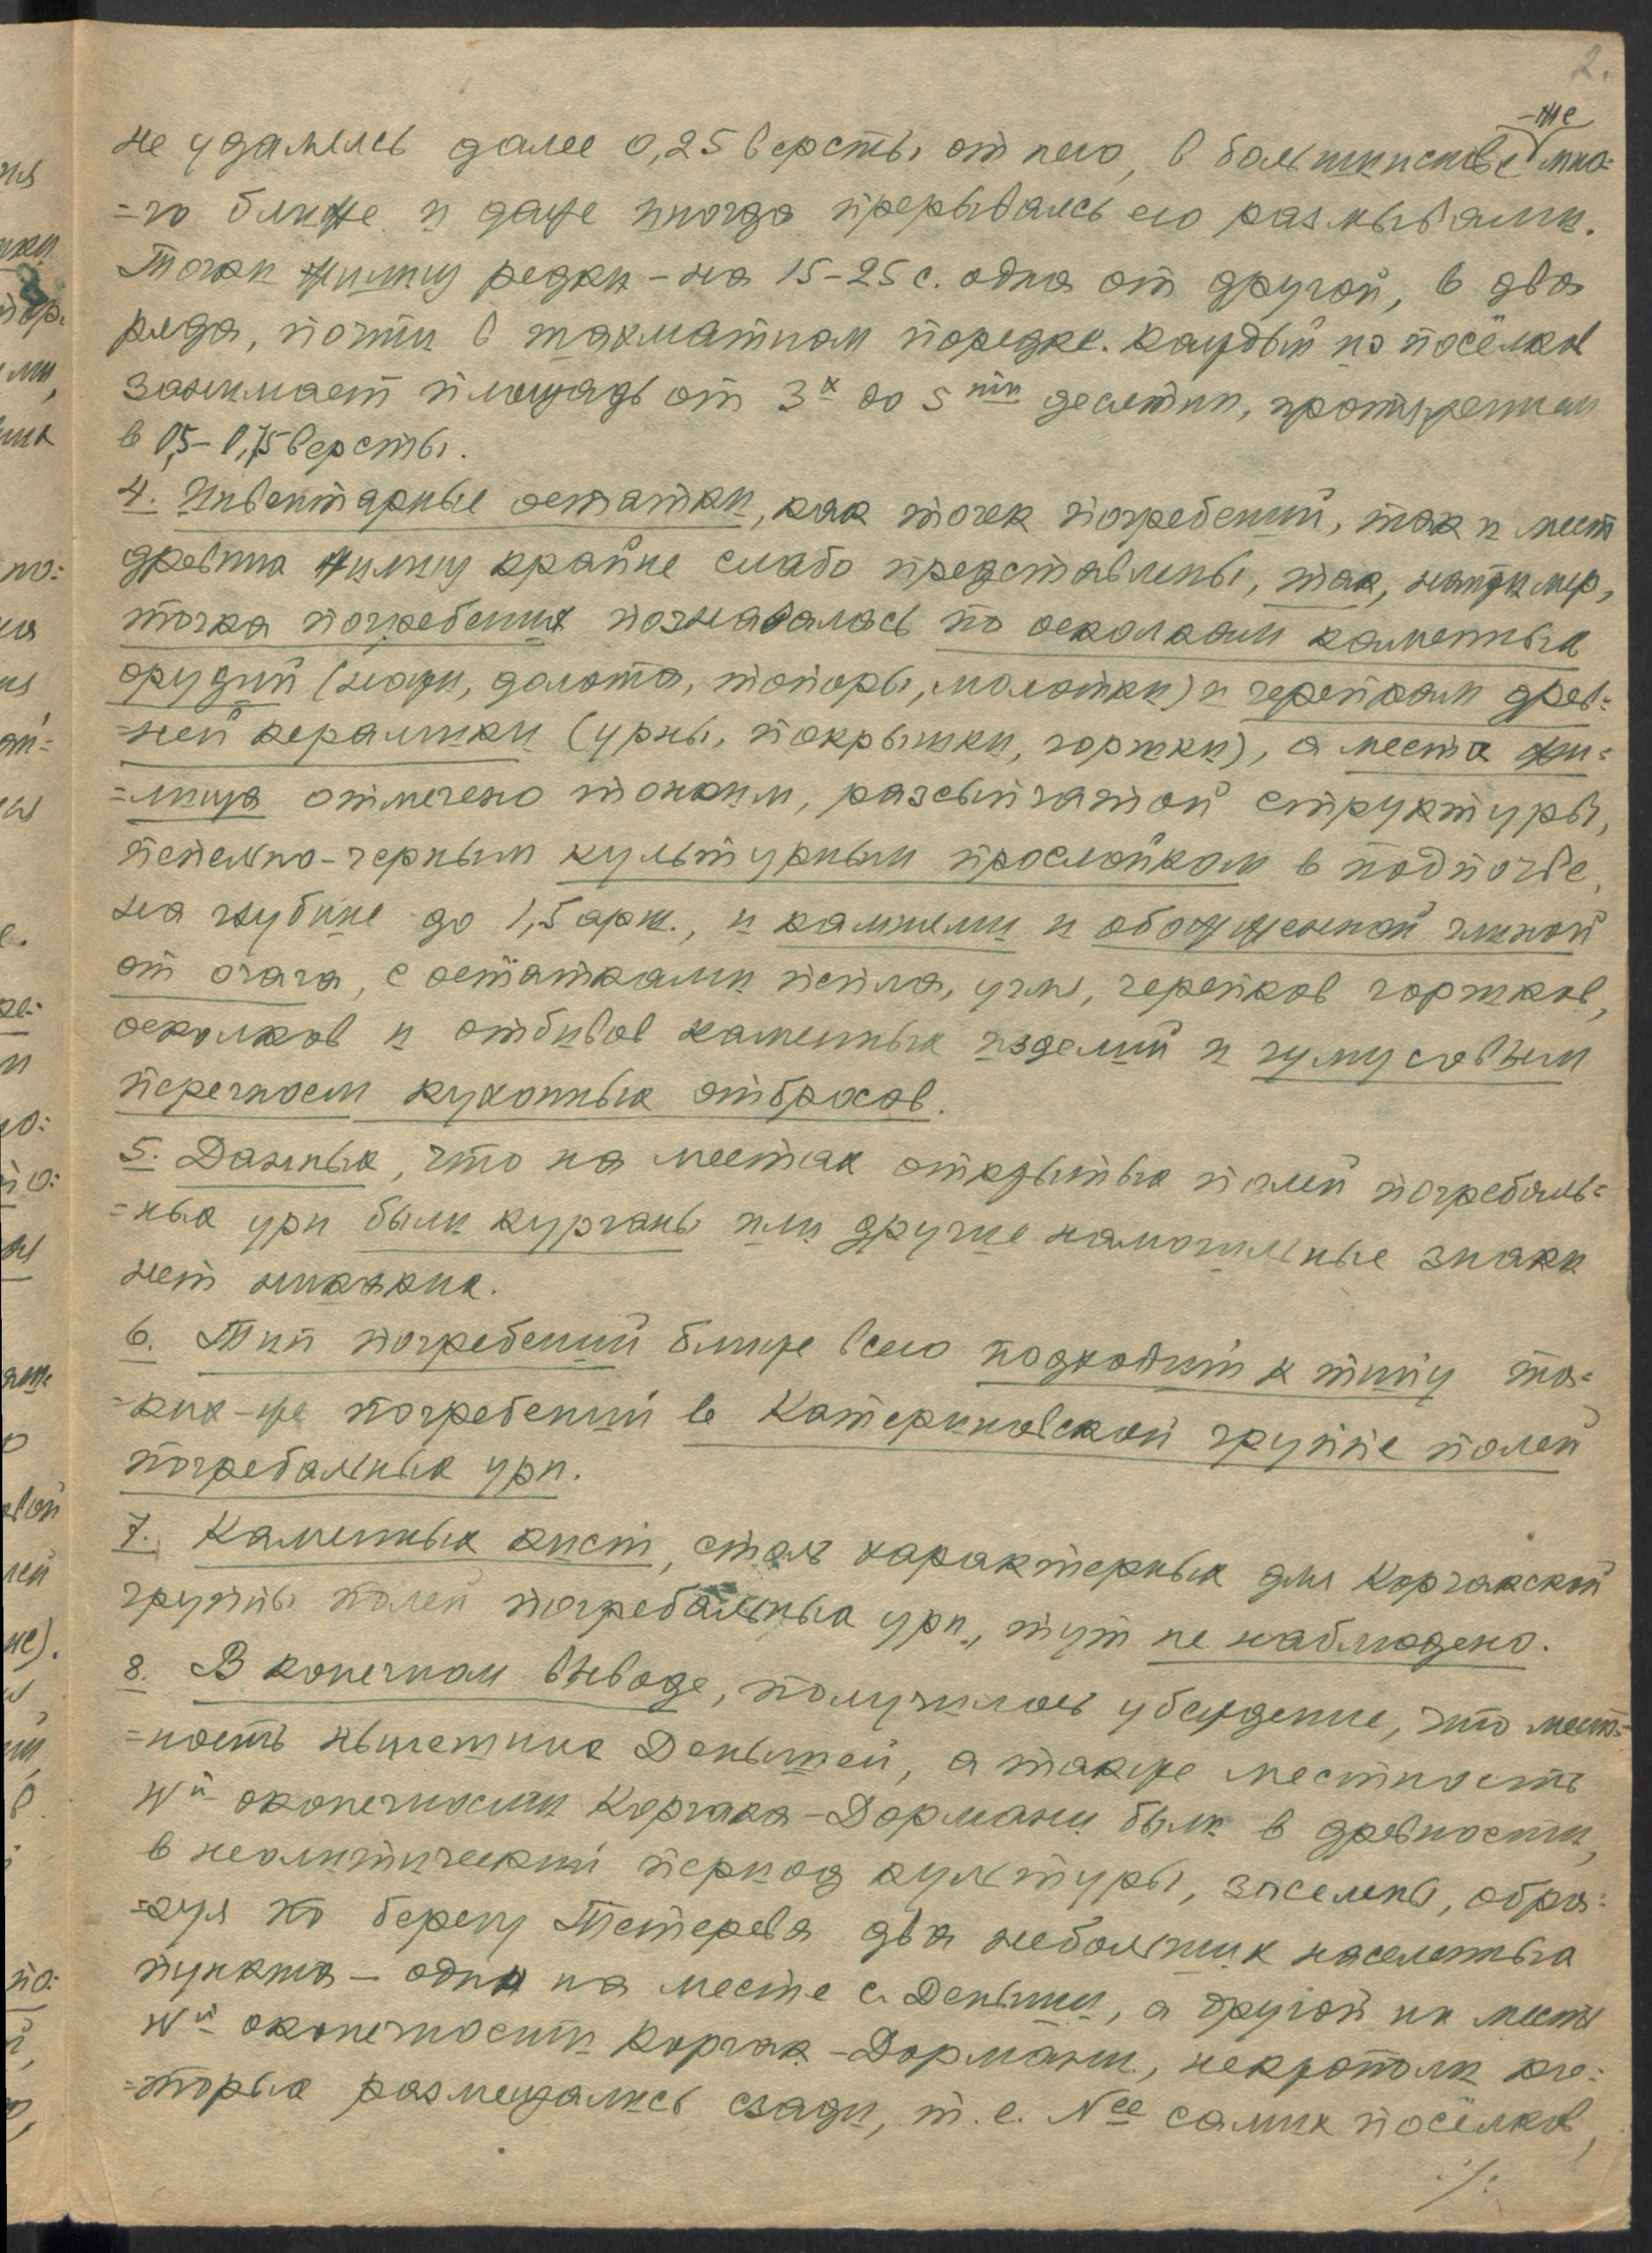 2.
не удалялсь далее 0,25 версты от него, в большинстве -же мно=
=го ближе и даже иногда прерываясь его размывами.
Точки жилищ редки - на 15-25 с. одна от другой, в два
ряда, почти в шахматном порядке. Каждый из посёлков
занимает площадь от 3х до 5ти десятин, протяжением
в 0,5-0,75 версты.
4. Инвентарные остатки, как точек погребений, так и мест
древних жилищ крайне слабо представлены, так, например,
точка погребения познавалась по осколкам каменных
орудий (ножи, долота, топоры, молотки) и черепкам древ=
=ней керамики (урны, покрышки, горшки), а места жи=
=лища отмечено тонким, рассыпчатой структуры,
пепельно-черным культурным прослойком в подпочве,
на глубине до 1,5 арш., и камнями и обожженной глиной
от очага, с остатками пепла, угля, черепков горшков,
осколков и отбивов каменных изделий и гумусовым
перегноем кухонных отбросов.
5. Данных, что на местах открытых полей погребаль=
=ных урн были курганы или другие намогильные знаки
нет никаких.
6. Тип погребений ближе всего подходит к типу та=
=ких-же погребений в Катериновской группе полей
погребальных урн.
7. Каменных кист, столь характерных для Корчакской
группы полей погребальных урн, тут не наблюдено.
8. В конечном выводе, получилось убеждение, что мест=
=ность нынешних Денышей, а также местность
Wй оконечности Корчака-Дормани были в древности,
в неолитический период культуры, заселены, обра=
=зуя по берегу Тетерева два небольших населенных
пункта - один на месте с. Деныши, а другой на месте
Wй оконечности Корчак-Дормани, некрополи ко=
=торых размещались сзади, т. е. Nее самих посёлков,
./.